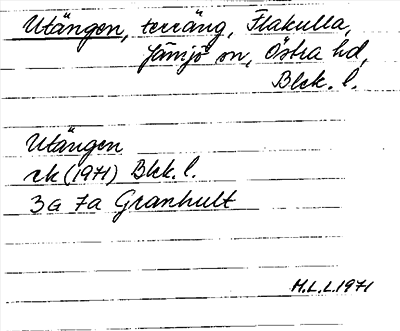 Utängen, terräng, Flakulla,
Jämjö sn, Östra hd,
Blek. l.
Utängen
rk (1971) Blek. l.
3G 7a Granhult
H.L.L. 1971